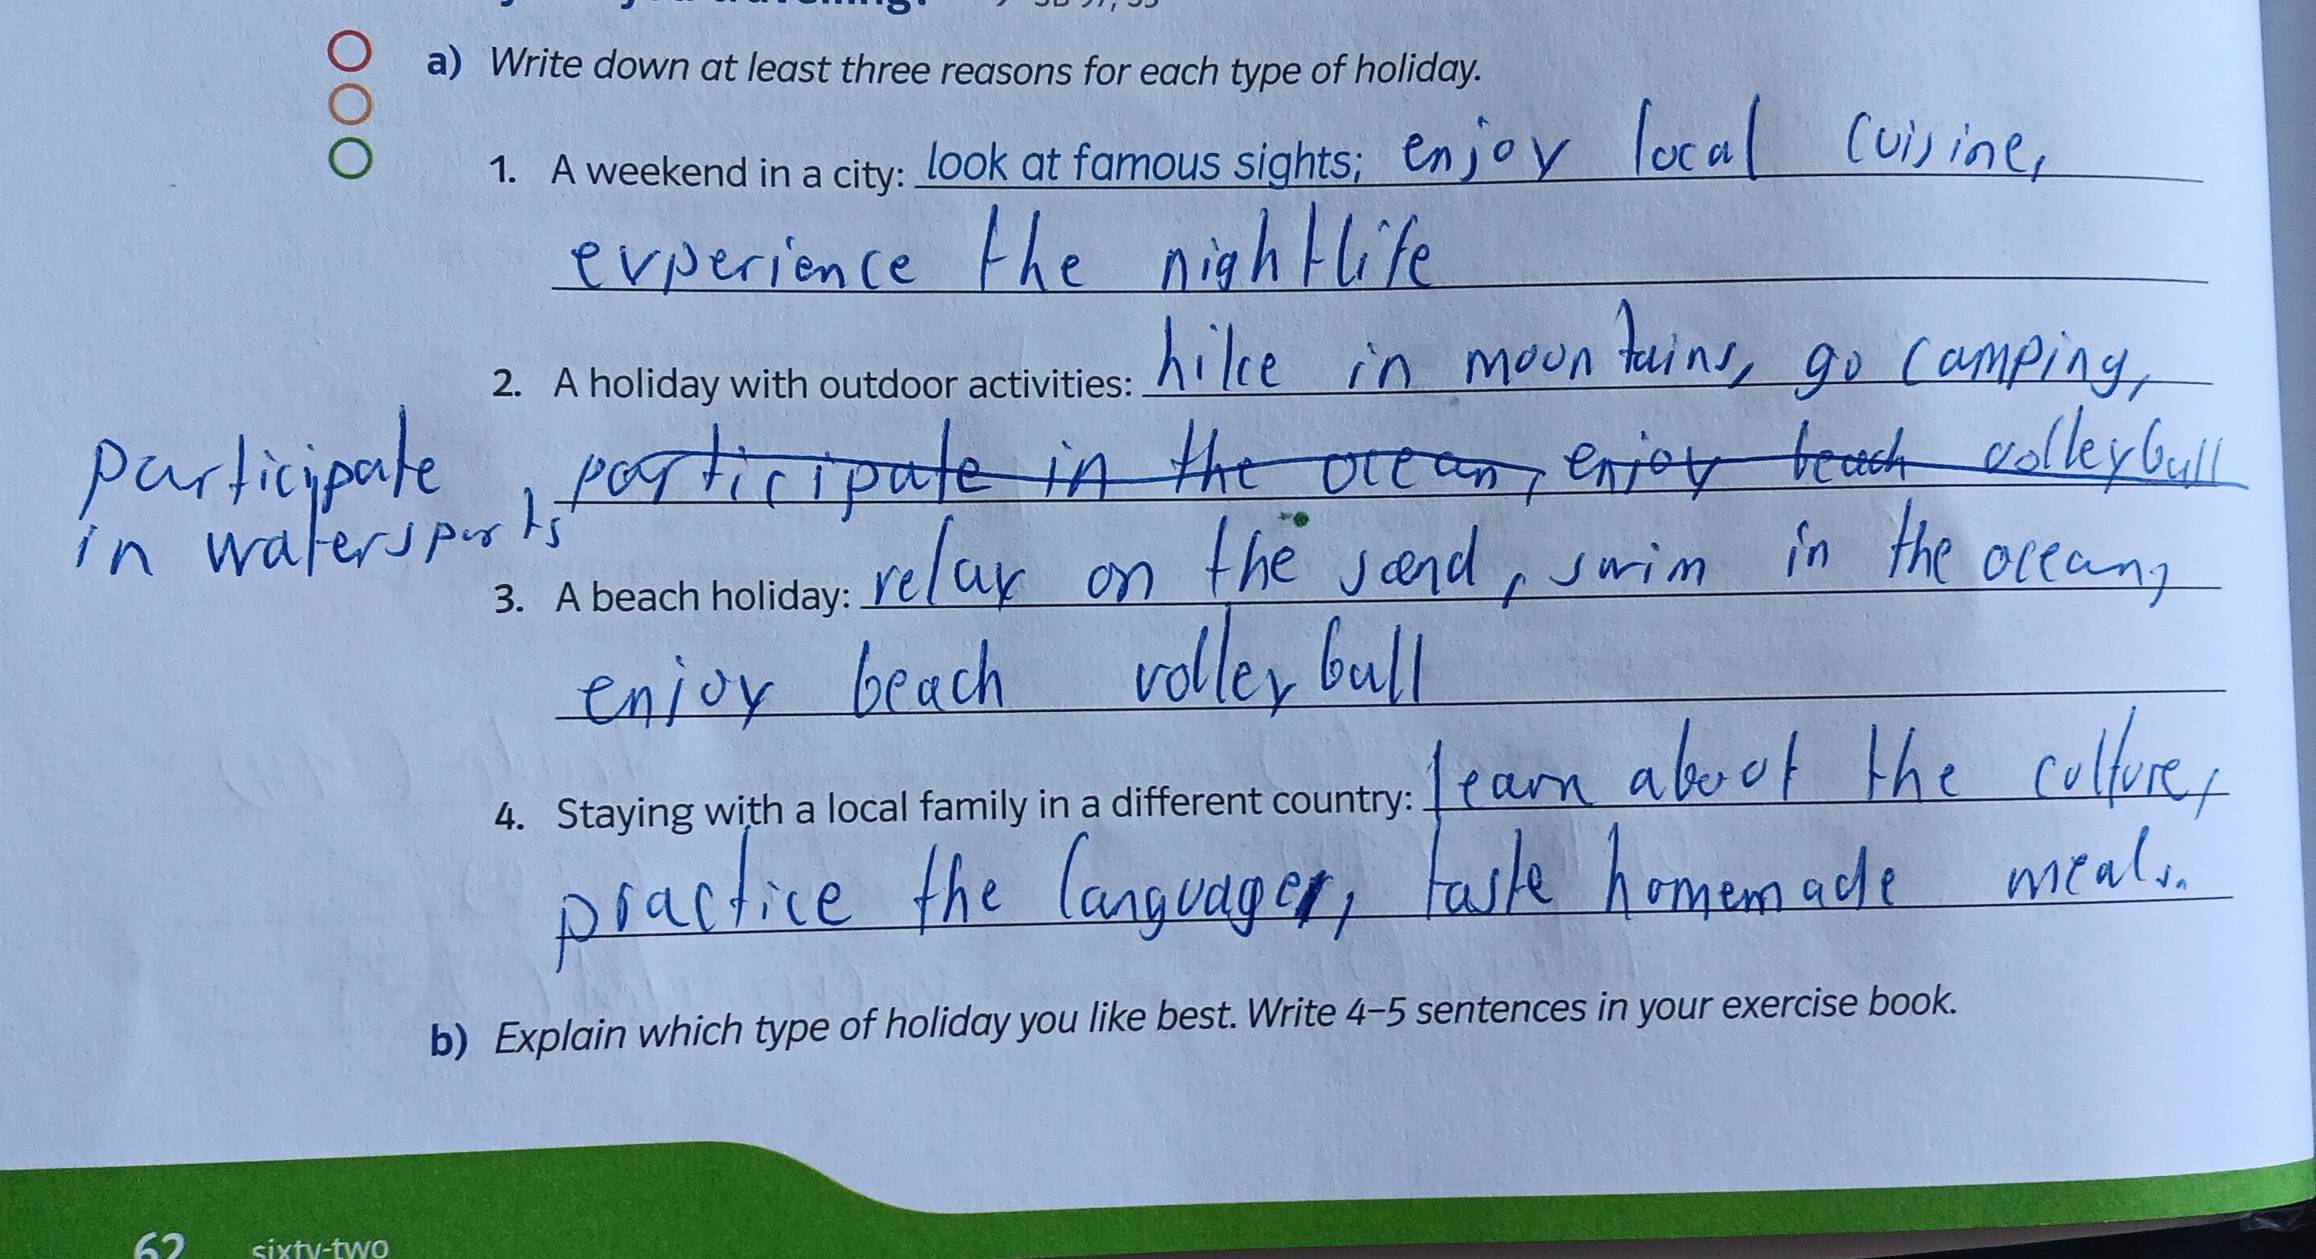 a) Write down at least three reasons for each type of holiday.
1. A weekend in a city: look at famous sights; enjoy local cuisine,
experience the nightlife
2. A holiday with outdoor activities: hike in mountains, go camping,
participate , participate in the ocean, enjoy beach volleyball
in watersports
3. A beach holiday: relax on the sand, swim in the ocean,
enjoy beach volleyball
4. Staying with a local family in a different country: learn about the culture,
practice the language, taste homemade meals.
b) Explain which type of holiday you like best. Write 4–5 sentences in your exercise book.
62 sixty-two